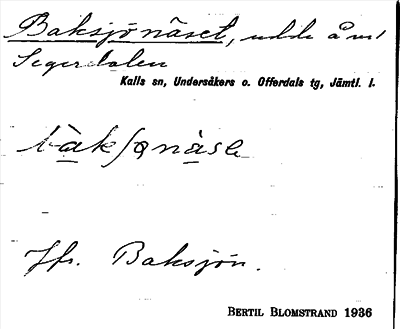 Baksjönäset, udde å vid
Segerdalen
Kalls sn, Undersåkers o. Offerdals tg, Jämtl. l.
Jfr. Baksjön.
BERTIL BLOMSTRAND 1936